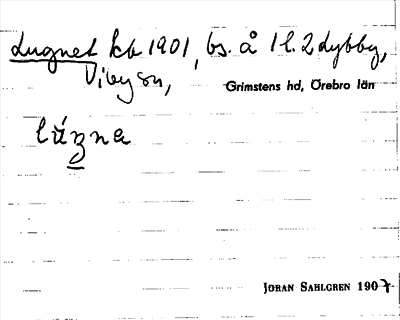 Lugnet kb 1901, bs. å 1 l. 2 Lybby,
Viby sn,
Grimstens hd, Örebro län
lúzne
JÖRAN SAHLGREN 1907